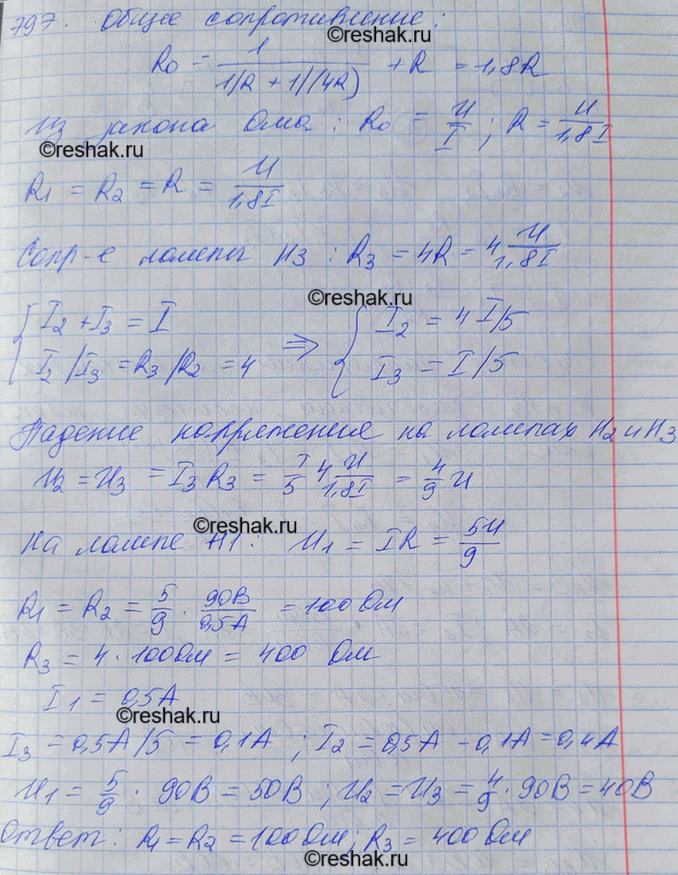 797. Общее сопротивление:
©reshak.ru
R0 = 1 / (1/R + 1/(4R)) + R = 1,8R
Из закона Ома: R0 = U/I; R = U/1,8I
©reshak.ru
R1 = R2 = R = U/1,8I
Сопр-е лампы H3: R3 = 4R = 4 U/1,8I
©reshak.ru
{ I2 + I3 = I ⇒ { I2 = 4I/5
I2/I3 = R3/R2 = 4 I3 = I/5
Падение напряжения на лампах H2 и H3
U2 = U3 = I3 R3 = I/5 4 U/1,8I = 4/9 U
©reshak.ru
На лампе H1: U1 = IR = 5U/9
R1 = R2 = 5/9 · 90В/0,5А = 100 Ом
R3 = 4 · 100 Ом = 400 Ом
I1 = 0,5А
©reshak.ru
I3 = 0,5А/5 = 0,1А; I2 = 0,5А - 0,1А = 0,4А
U1 = 5/9 · 90В = 50В; U2 = U3 = 4/9 · 90В = 40В
Ответ: R1 = R2 = 100 Ом; R3 = 400 Ом
©reshak.ru